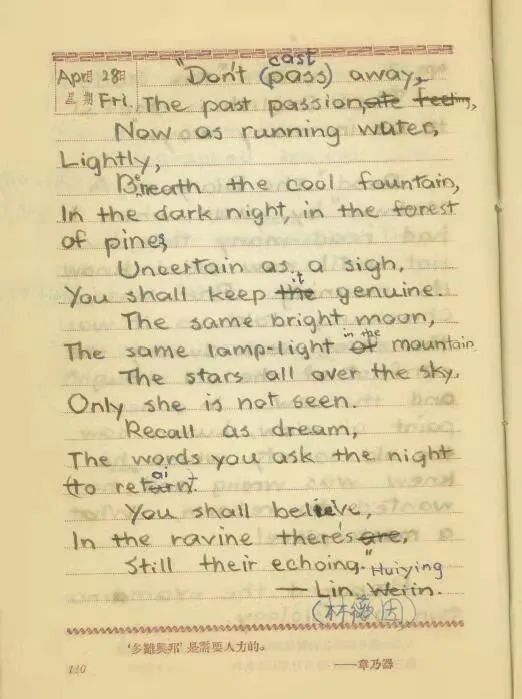 April 28日
星期 Fri.
cast
"Don't (pass) away,
The past passion,ate feeling,
Now as running water,
Lightly,
Beneath the cool fountain,
In the dark night, in the forest
of pines,
Uncertain as a sigh,
it
You shall keep the genuine.
The same bright moon,
in the
The same lamp-light of mountain
The stars all over the sky,
Only she is not seen.
Recall as dream,
The words you ask the night
ai
(to return).
You shall believe,
In the ravine there's are,
Still their echoing."
Huiying
— Lin, Weiin.
(林徽因)
'多難興邦' 是需要人力的。
120 ——章乃器